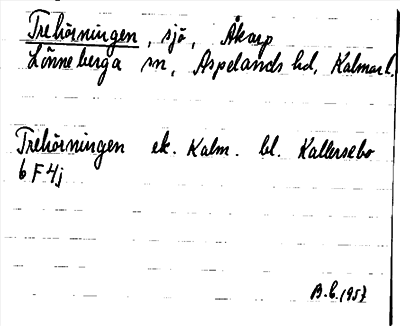 Trehörningen, sjö, Åkarp
Lönneberga sn, Aspelands hd, Kalmar l.
Trehörningen ek. Kalm. bl. Kallersebo
6 F 4j
B.E. 1957